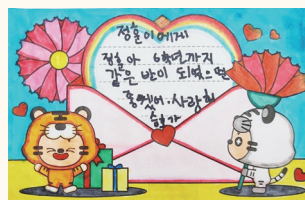 정훈이에게
정훈아 6학년까지
같은 반이 되었으면
좋겠어. 사랑해